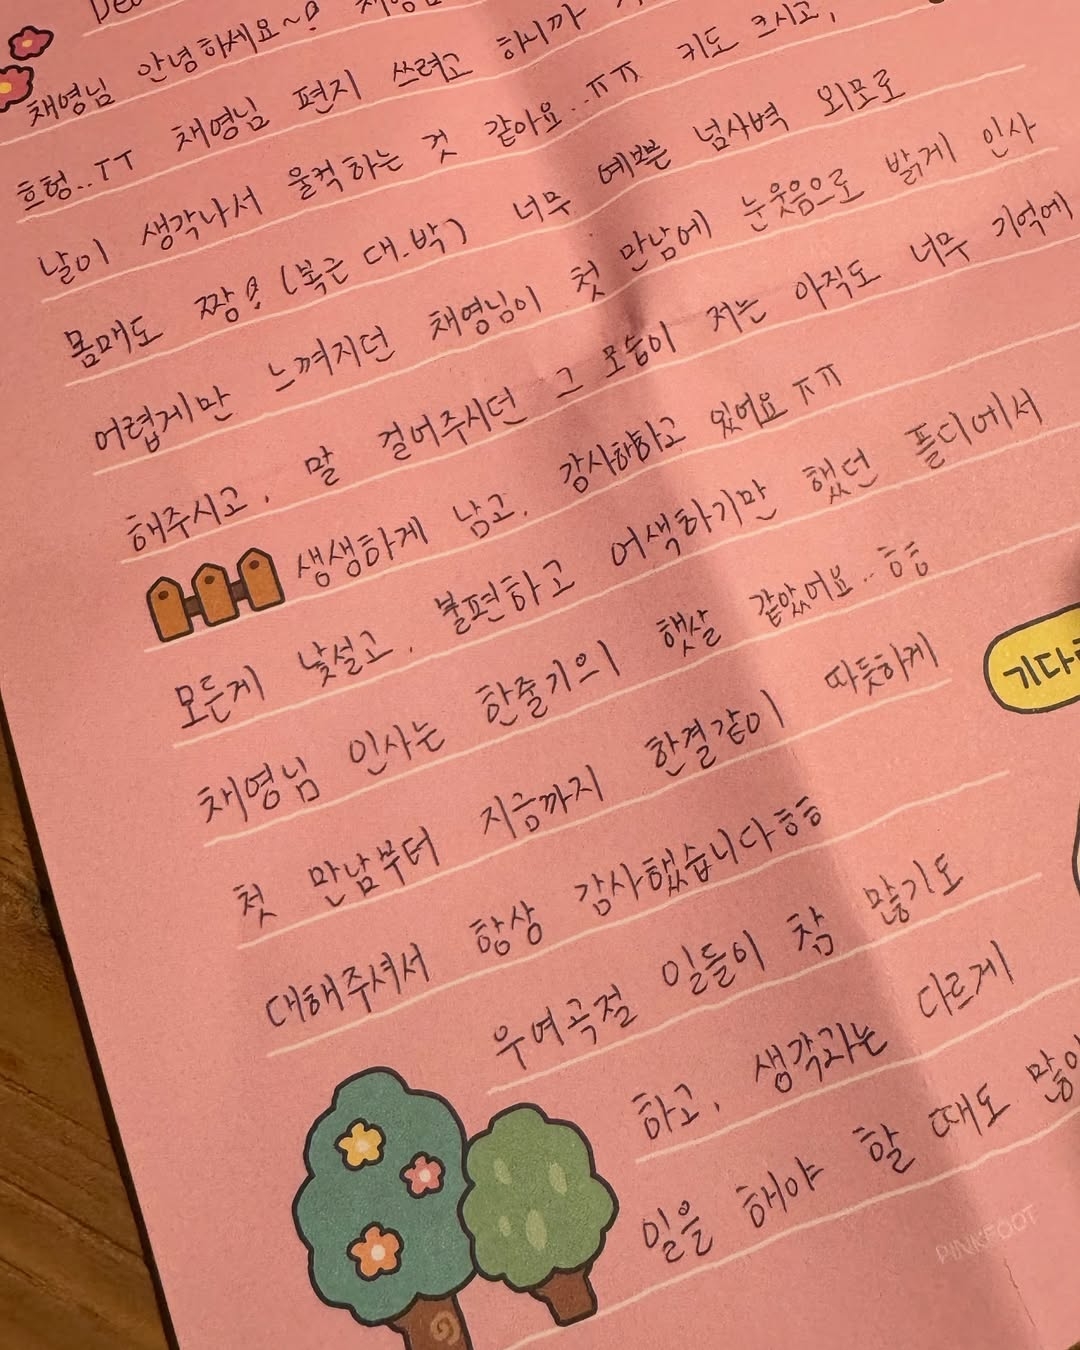 채영님 안녕하세요~!
흐헝..ㅜㅜ 채영님 편지 쓰려고 하니까
날이 생각나서 울컥하는 것 같아요..ㅠㅠ 키도 크시고,
몸매도 짱! (복근 대.박) 너무 예쁜 넘사벽 외모로
어렵게만 느껴지던 채영님이 첫 만남에 눈웃음으로 밝게 인사
해주시고, 말 걸어주시던 그 모습이 저는 아직도 너무 기억에
생생하게 남고, 감사해하고 있어요 ㅠㅠ
모든게 낯설고, 불편하고 어색하기만 했던 플디에서
채영님 인사는 한줄기의 햇살 같았어요..ㅎㅎ
첫 만남부터 지금까지 한결같이 따듯하게
대해주셔서 항상 감사했습니다ㅎㅎ
우여곡절 일들이 참 많기도
하고, 생각과는 다르게
일을 해야 할 때도
기다
PINKFOOT